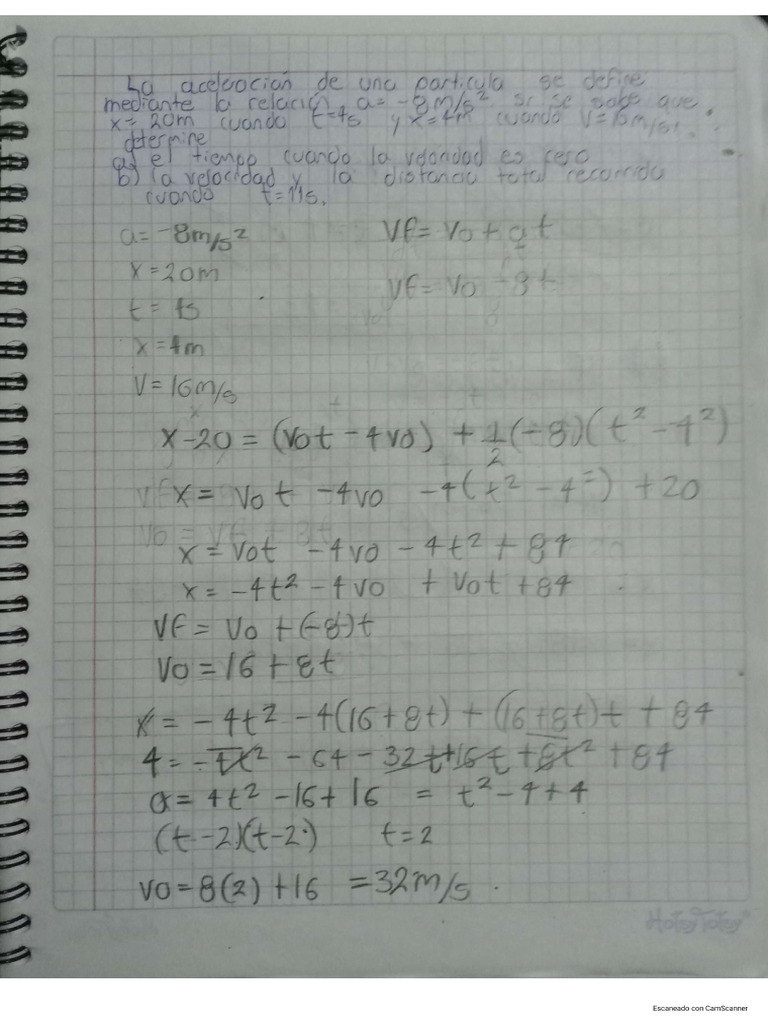 La aceleración de una particula se define
mediante la relación a = -8 m/s² si se sabe que
x = 20m cuando t=4s y x=4m cuando V=16m/s.
determine
a) el tiempo cuando la velocidad es cero
b) la velocidad y la distancia total recorrida
cuando t=11s.
a = -8m/s² Vf = Vo + at
x = 20m Vf = Vo - 8t
t = 4s
x = 4m
V = 16m/s
x - 20 = (Vot - 4Vo) + 1/2 (-8)(t² - 4²)
x = Vot - 4Vo - 4(t² - 4²) + 20
x = Vot - 4Vo - 4t² + 84
x = -4t² - 4Vo + Vot + 84
Vf = Vo + (-8)t
Vo = 16 + 8t
x = -4t² - 4(16+8t) + (16+8t)t + 84
4 = -4t² - 64 - 32t + 16t + 8t² + 84
0 = 4t² - 16t + 16 = t² - 4 + 4
(t-2)(t-2) t=2
Vo = 8(2) + 16 = 32m/s.
HotsyTotsy
Escaneado con CamScanner